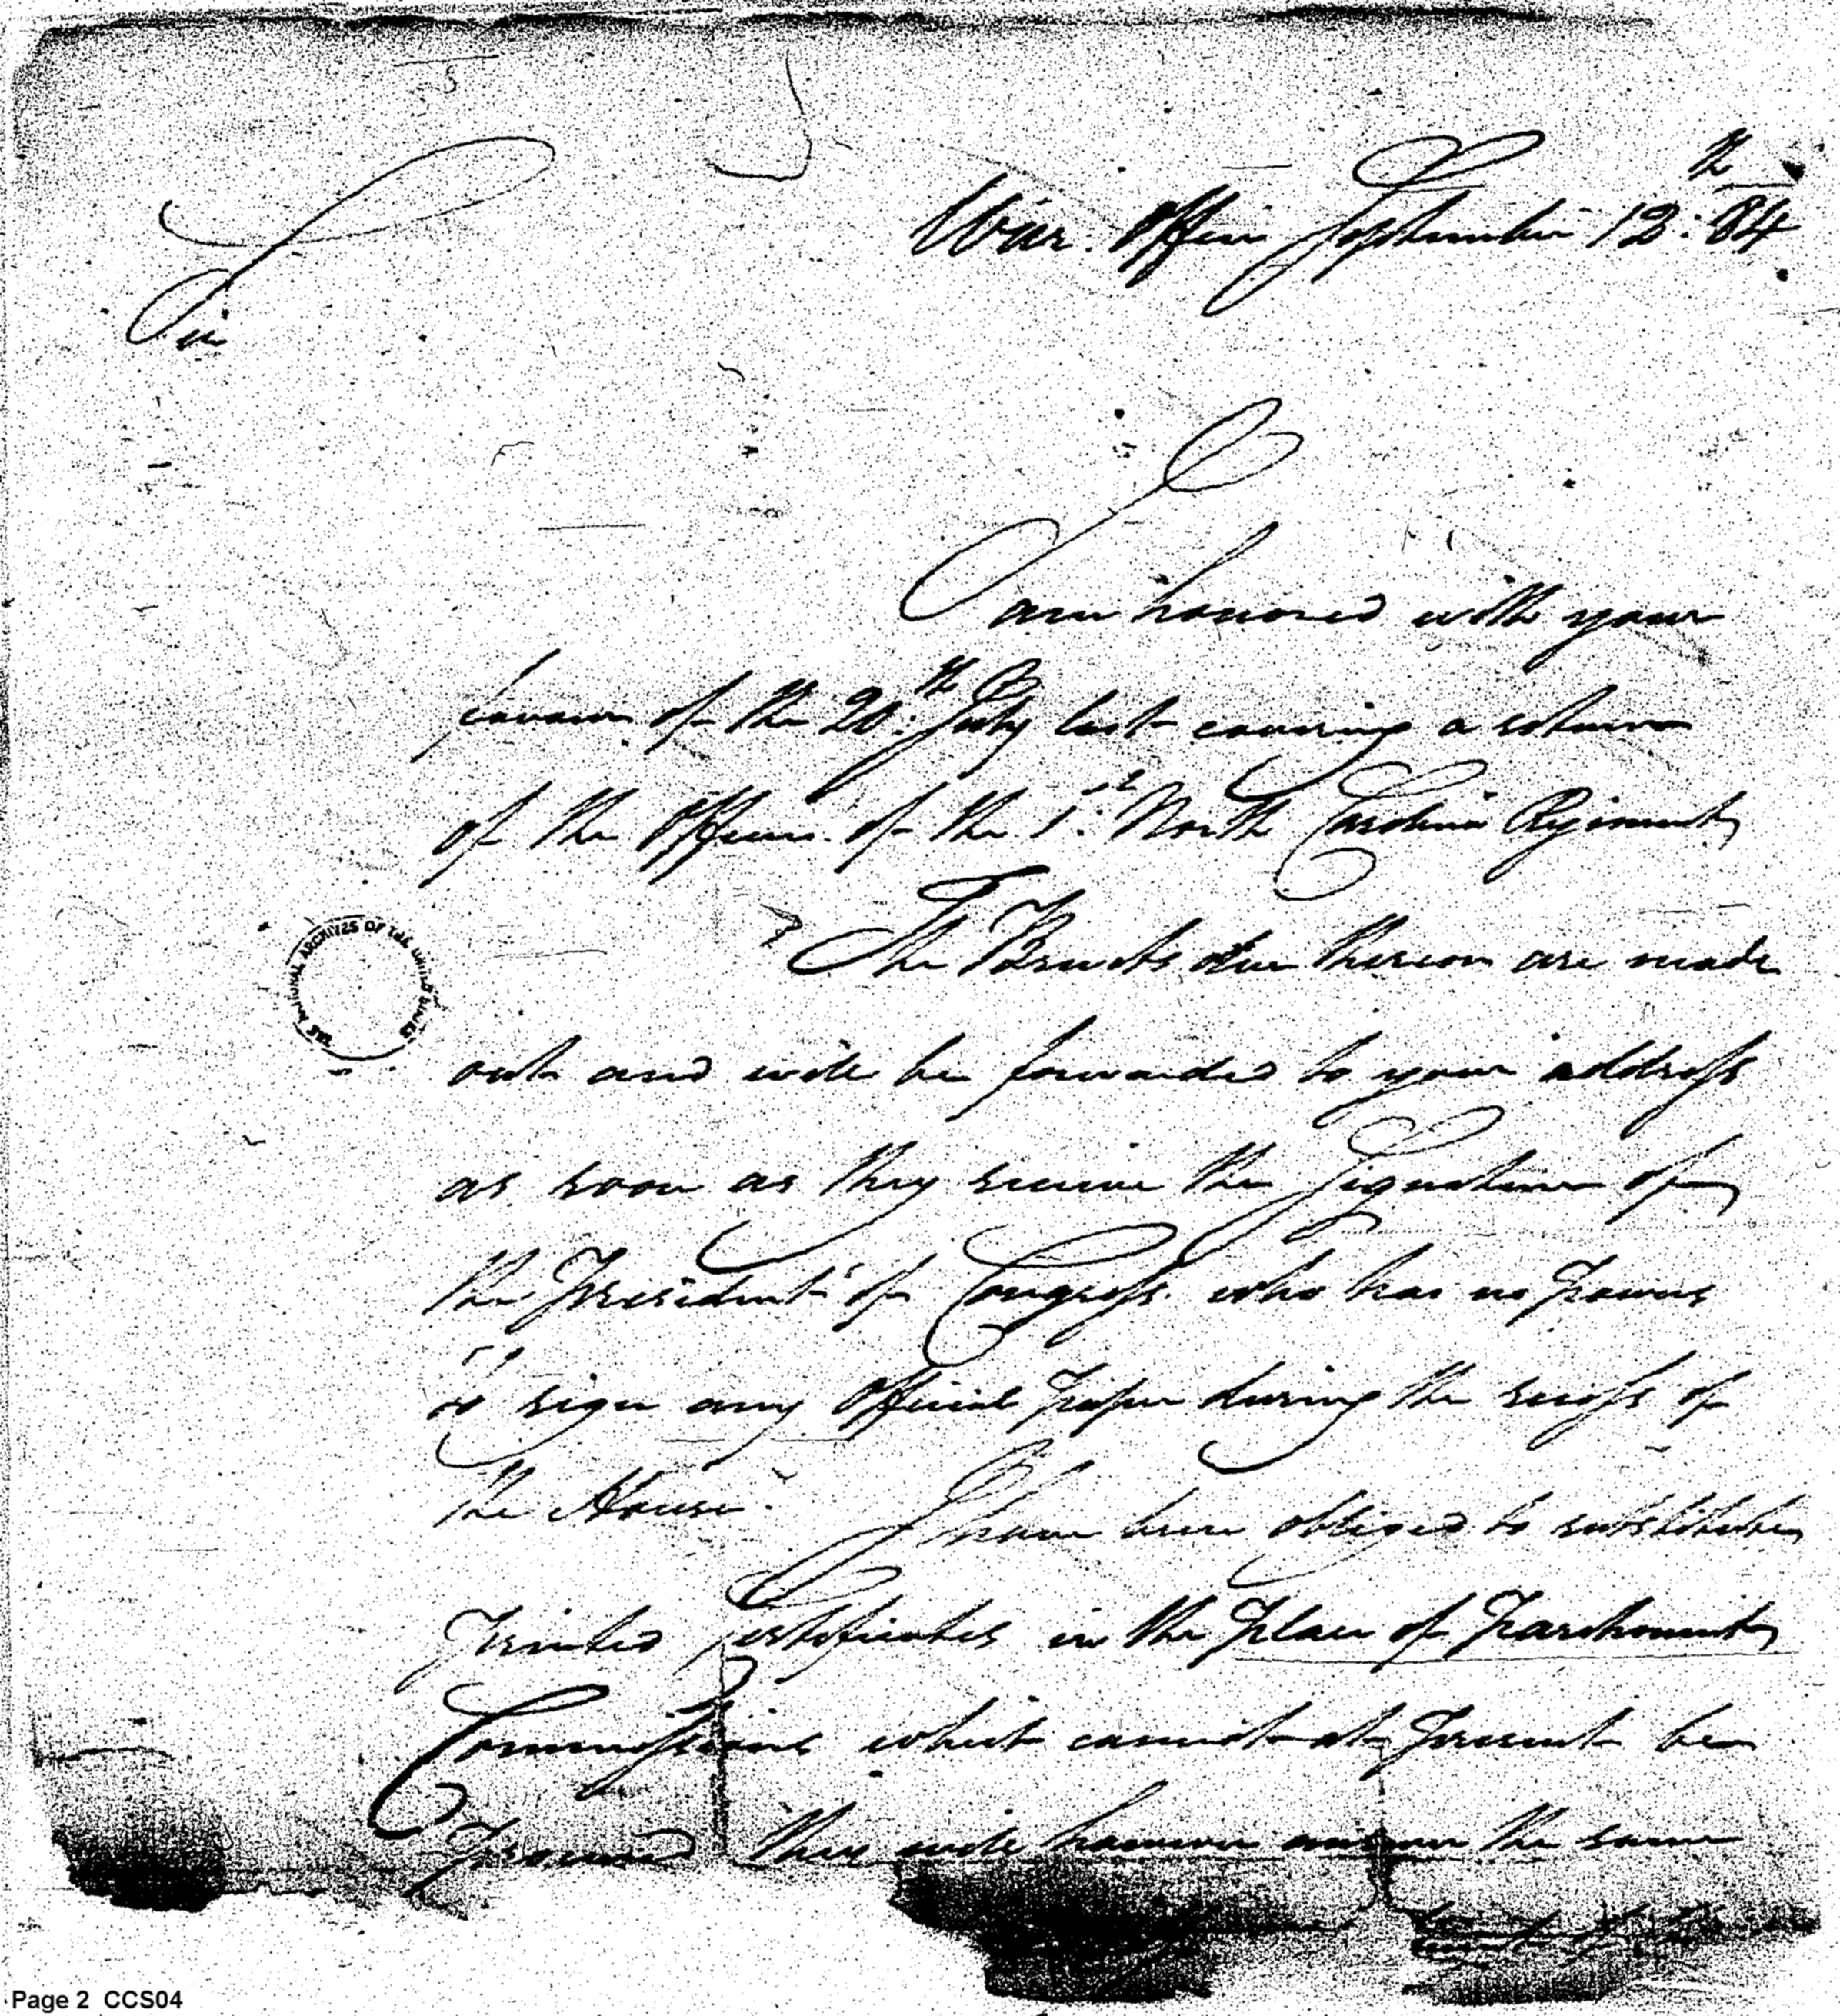 War Office September 12:th 84
Sir
I am honored with your
favour of the 20:th July last covering a return
of the Officers of the 1:st North Carolina Regiment
The Brevets due thereon are made
out and will be forwarded to your address
as soon as they receive the Signature of
the President of Congress who has no powers
to sign any Official paper during the recess of
the House. I have been obliged to substitute
Printed Certificates in the place of Parchment
Commissions which cannot at present be
procured they will however answer the same
THE NATIONAL ARCHIVES OF THE UNITED STATES
Page 2 CCS04